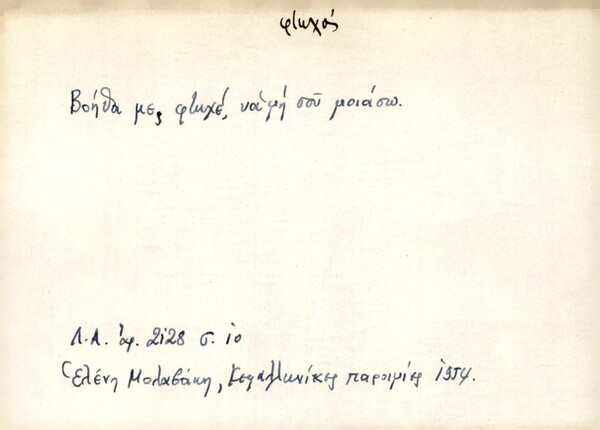 φτωχός
Βοήθα με, φτωχέ, νὰ μή σοῦ μοιάσω.
Λ.Α. ἀρ. 2128 σ. 10
Ἑλένη Μολαβάκη, Κεφαλληνίκες παροιμίες 1954.